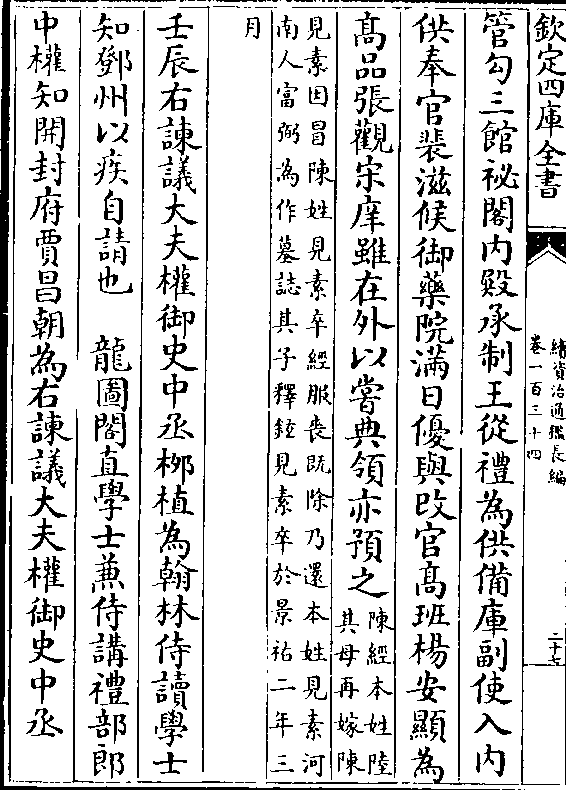 欽定四庫全書
續資治通鑑長編
卷一百三十四
二十七
管勾三館祕閣内殿承制王從禮為供備庫副使入内
供奉官裴滋候御藥院滿日優與改官髙班楊安顯為
髙品張觀宋庠雖在外以嘗典領亦預之
陳經本姓陸
其母再嫁陳
見素因冒陳姓見素卒經服喪既除乃還本姓見素河
南人富弼為作墓誌其子釋經見素卒於景祐二年三
月
壬辰右諫議大夫權御史中丞栁植為翰林侍讀學士
知鄧州以疾自請也　龍圖閣直學士兼侍講禮部郎
中權知開封府賈昌朝為右諫議大夫權御史中丞